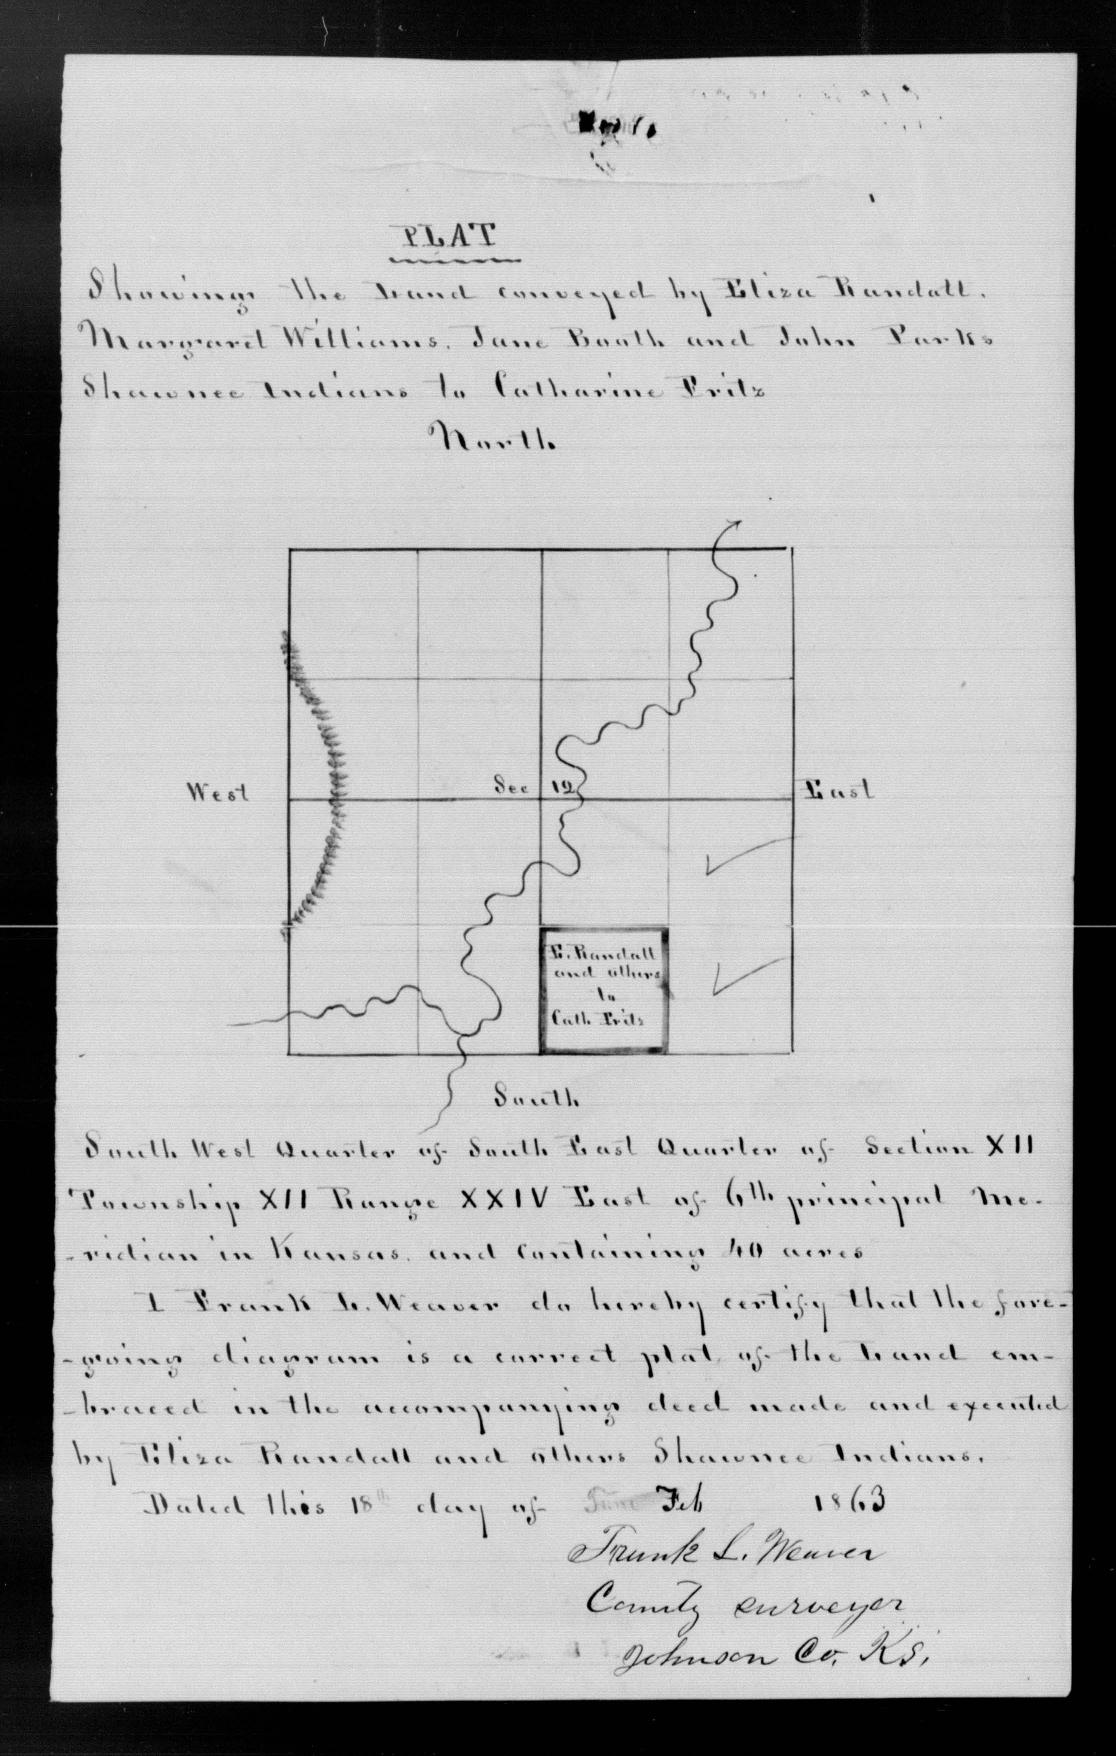 PLAT
Showing the Land conveyed by Eliza Randall,
Margaret Williams, Jane Booth and John Parks
Shawnee Indians to Catharine Fritz
North
West
Sec 12
East
E. Randall
and others
to
Cath Fritz
South
South West Quarter of South East Quarter of Section XII
Township XII Range XXIV East of 6th principal Me-
-ridian in Kansas, and containing 40 acres
I Frank L. Weaver do hereby certify that the fore-
-going diagram is a correct plat of the Land em-
-braced in the accompanying deed made and executed
by Eliza Randall and others Shawnee Indians.
Dated this 18th day of Feb 1863
Frank L. Weaver
County surveyor
Johnson Co. Ks.